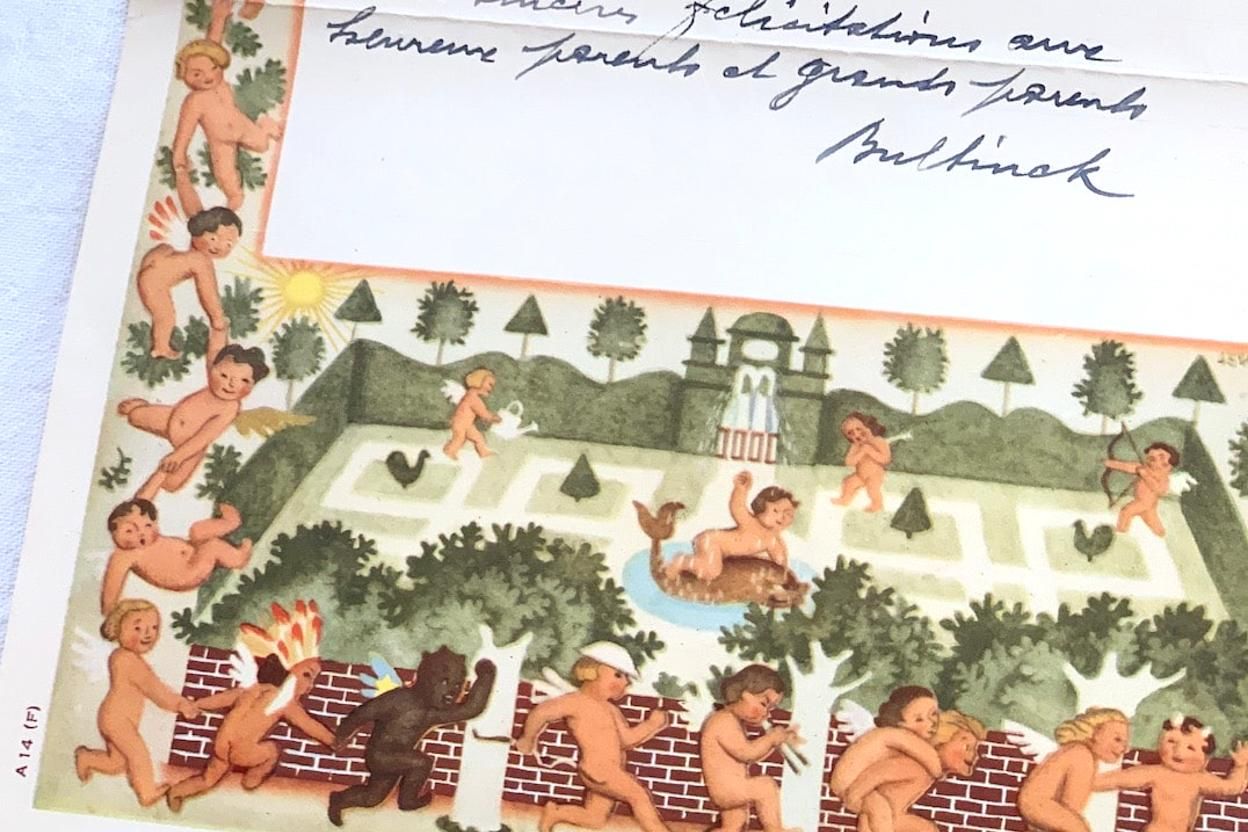 sincères félicitations aux
heureux parents et grands parents
Bultinck
A 14 (F)